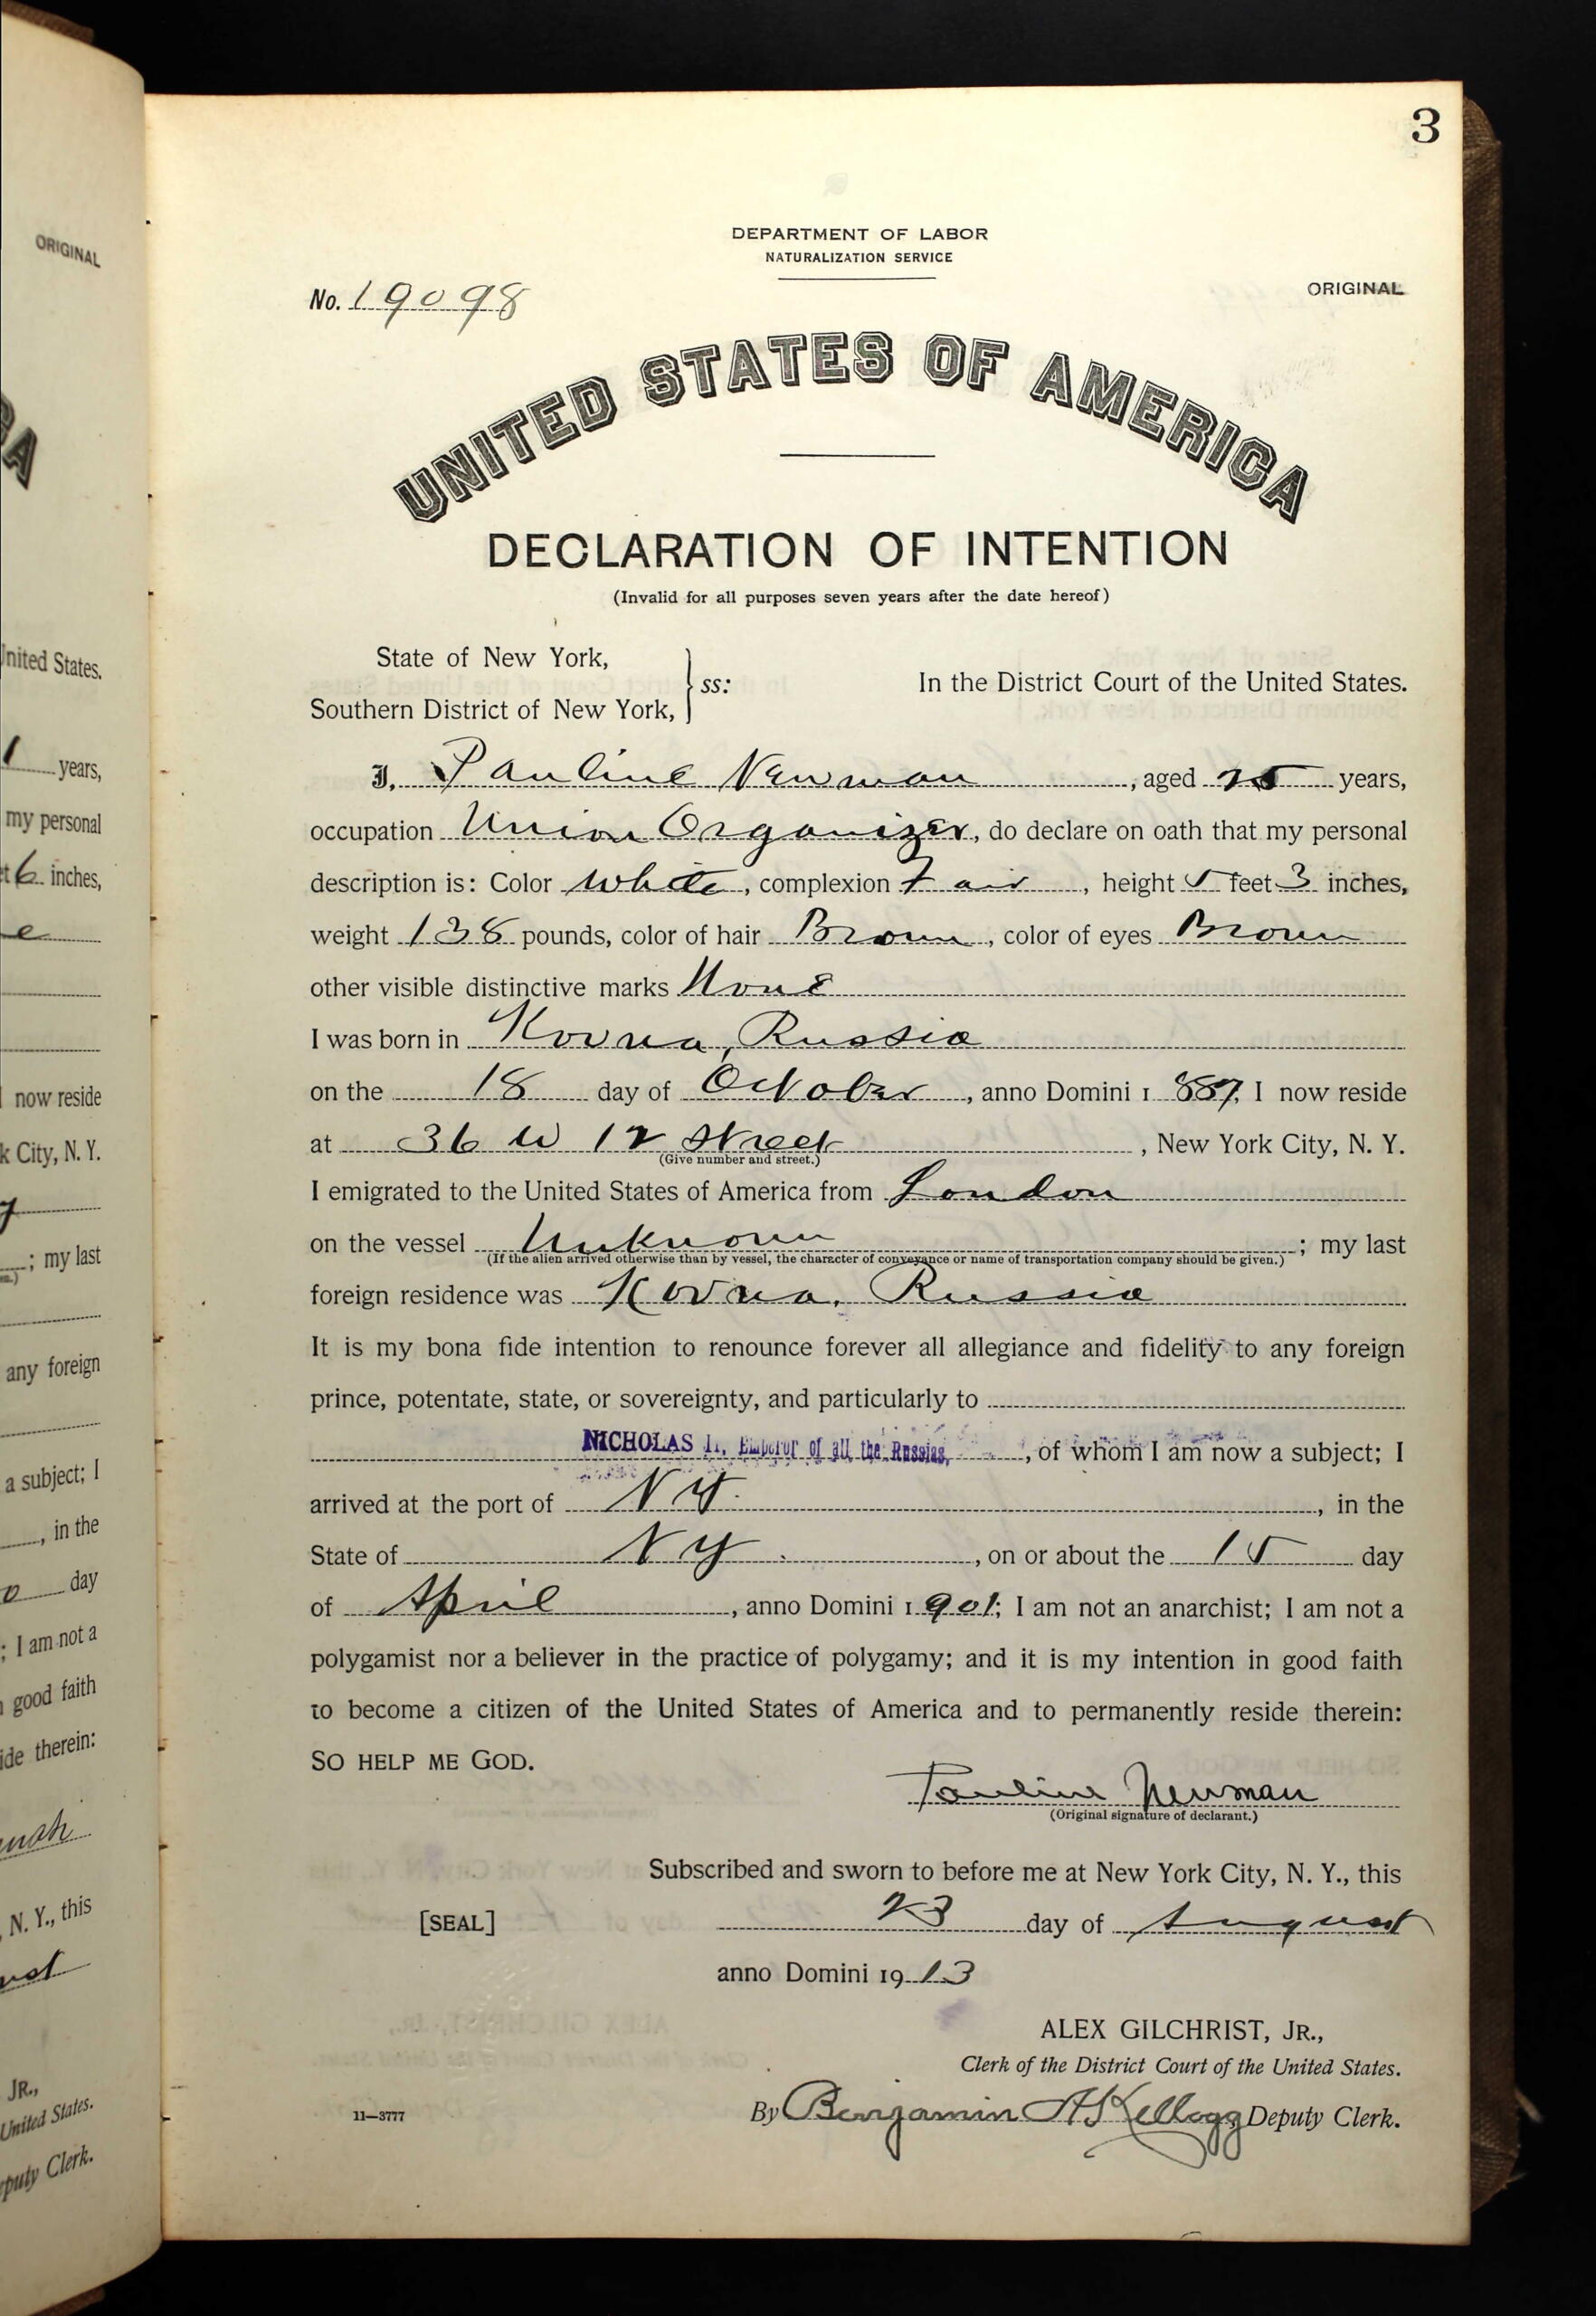 3
DEPARTMENT OF LABOR
NATURALIZATION SERVICE
No. 19098
ORIGINAL
UNITED STATES OF AMERICA
DECLARATION OF INTENTION
(Invalid for all purposes seven years after the date hereof)
State of New York,
Southern District of New York, } ss:
In the District Court of the United States.
I, Pauline Newman, aged 25 years,
occupation Union Organizer, do declare on oath that my personal
description is: Color White, complexion Fair, height 5 feet 3 inches,
weight 138 pounds, color of hair Brown, color of eyes Brown
other visible distinctive marks None
I was born in Kovna, Russia
on the 18 day of October, anno Domini 1887, I now reside
at 36 W 12 Street, New York City, N. Y.
(Give number and street.)
I emigrated to the United States of America from London
on the vessel Unknown; my last
(If the alien arrived otherwise than by vessel, the character of conveyance or name of transportation company should be given.)
foreign residence was Kovna, Russia
It is my bona fide intention to renounce forever all allegiance and fidelity to any foreign
prince, potentate, state, or sovereignty, and particularly to
NICHOLAS II, Emperor of all the Russias, of whom I am now a subject; I
arrived at the port of N Y., in the
State of N Y., on or about the 15 day
of April, anno Domini 1901; I am not an anarchist; I am not a
polygamist nor a believer in the practice of polygamy; and it is my intention in good faith
to become a citizen of the United States of America and to permanently reside therein:
SO HELP ME GOD.
Pauline Newman
(Original signature of declarant.)
Subscribed and sworn to before me at New York City, N. Y., this
[SEAL] 23 day of August
anno Domini 1913
ALEX GILCHRIST, JR.,
Clerk of the District Court of the United States.
11—3777
By Benjamin A Kellogg Deputy Clerk.
ORIGINAL
United States.
1 years,
my personal
6 inches,
e
now reside
k City, N. Y.
; my last
any foreign
a subject; I
, in the
day
; I am not a
good faith
ide therein:
N. Y., this
JR.,
United States.
eputy Clerk.